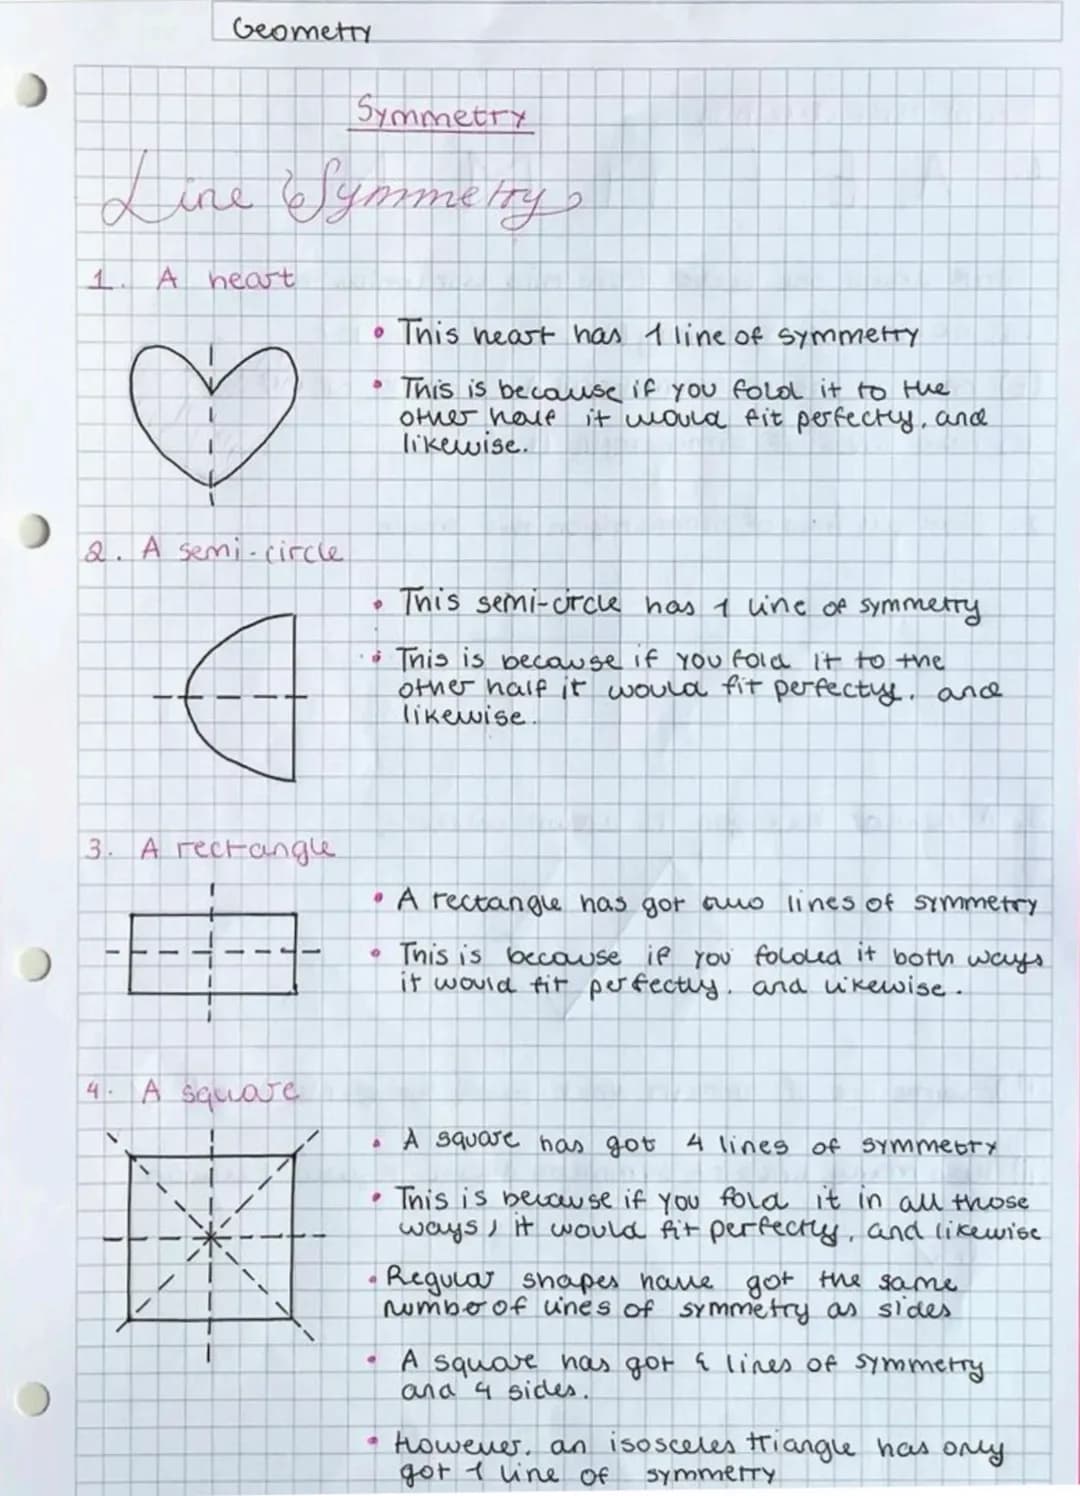 Geometry
Symmetry
Line Symmetry
1. A heart
• This heart has 1 line of symmetry
• This is because if you fold it to the
other half it would fit perfectly, and
likewise.
2. A semi-circle
• This semi-circle has 1 line of symmetry
• This is because if you fold it to the
other half it would fit perfectly, and
likewise.
3. A rectangle
• A rectangle has got two lines of symmetry
• This is because if you folded it both ways
it would fit perfectly, and likewise.
4. A square
• A square has got 4 lines of symmetry
• This is because if you fold it in all those
ways, it would fit perfectly, and likewise
• Regular shapes have got the same
number of lines of symmetry as sides
• A square has got 4 lines of symmetry
and 4 sides.
• However, an isosceles triangle has only
got 1 line of symmetry